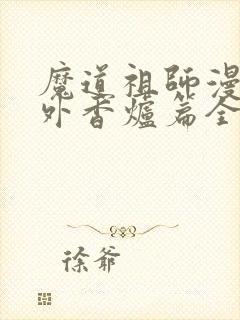 魔道祖師漫
外香爐篇全
徐爺